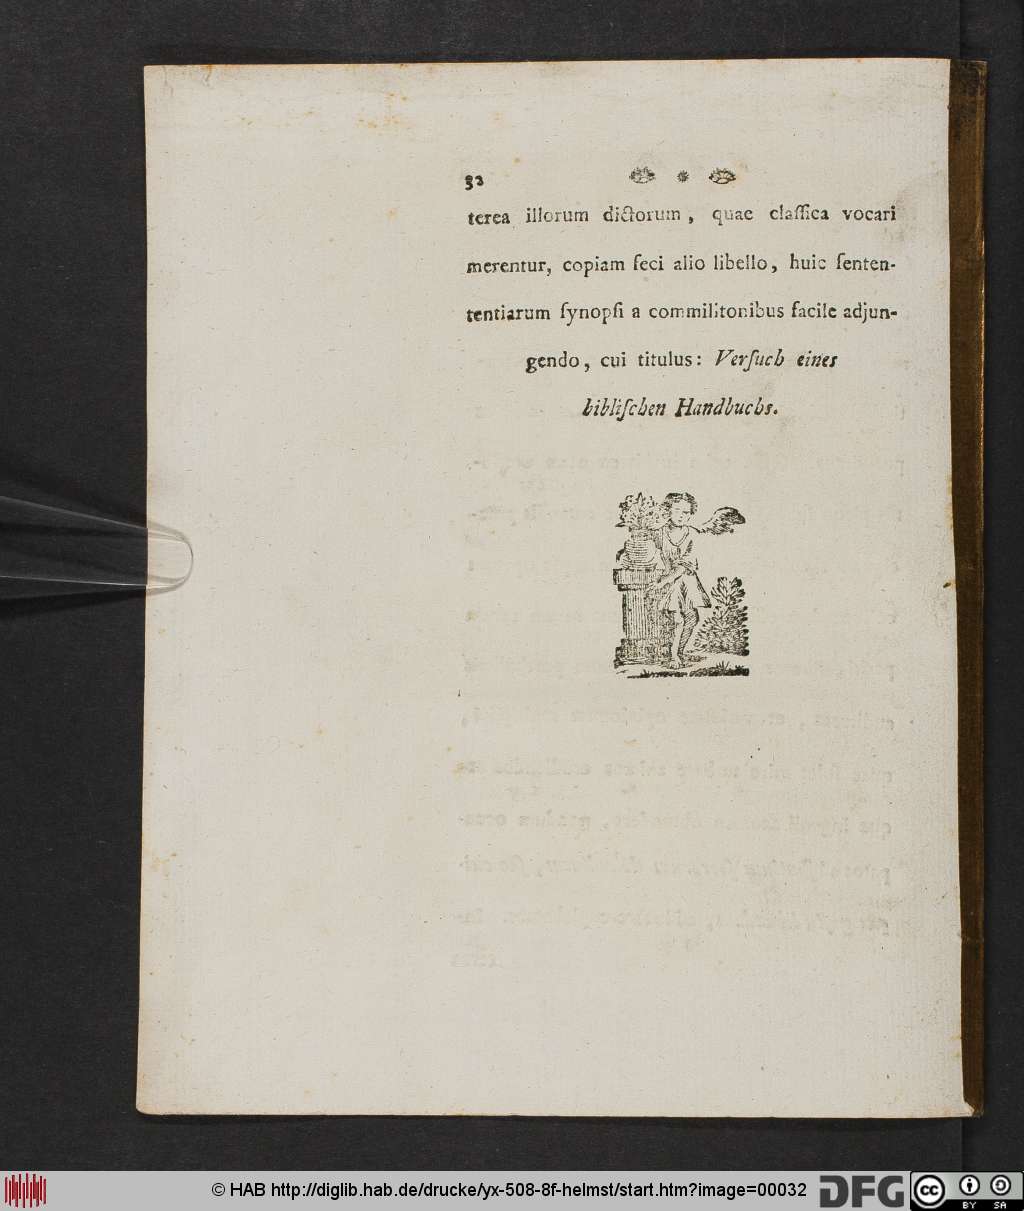 32
terea illorum dictorum, quae claſſica vocari
merentur, copiam feci alio libello, huic ſenten-
tentiarum ſynopſi a commilitonibus facile adjun-
gendo, cui titulus: Verſuch eines
bibliſchen Handbuchs.
© HAB http://diglib.hab.de/drucke/yx-508-8f-helmst/start.htm?image=00032
DFG
cc BY SA